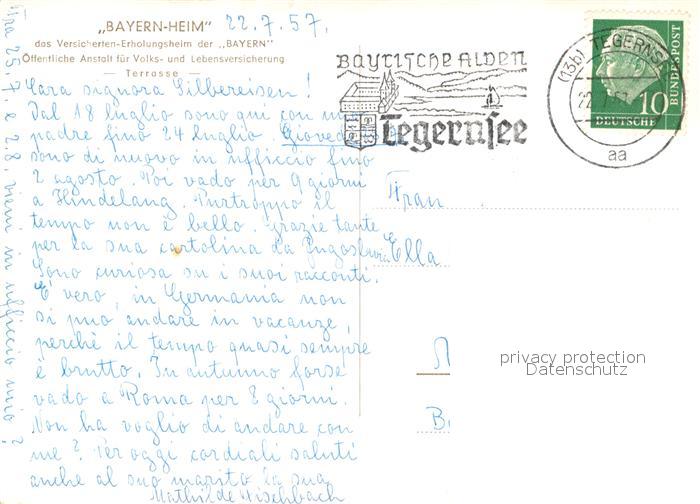 „BAYERN-HEIM" 22.7.57.
das Versicherten-Erholungsheim der „BAYERN"
Öffentliche Anstalt für Volks- und Lebensversicherung
— Terrasse —
Cara signora Silbereisen!
Dal 18 luglio sono qui con mio
padre fino 24 luglio. Giovedì
sono di nuovo in ufficcio fino
2 agosto. Poi vado per 9 giorni
a Hindelang. Purtroppo il
tempo non è bello. Grazie tante
per la sua cartolina da Jugoslavia
Sono curiosa su i suoi racconti.
E' vero, in Germania non
si può andare in vacanze,
perchè il tempo quasi sempre
è brutto. In autunno forse
vado a Roma per 8 giorni.
Non ha voglio di andare con
me? Per oggi cordiali saluti
anche al suo marito la sua
Mathilde Fischbach
Fra 25.7. e 2.8. vieni in ufficcio mio?
Bayrische Alpen
Tegernsee
(13b) TEGERNSEE
22.7.57
aa
10
DEUTSCHE
BUNDESPOST
Frau
Ella
privacy protection
Datenschutz
B